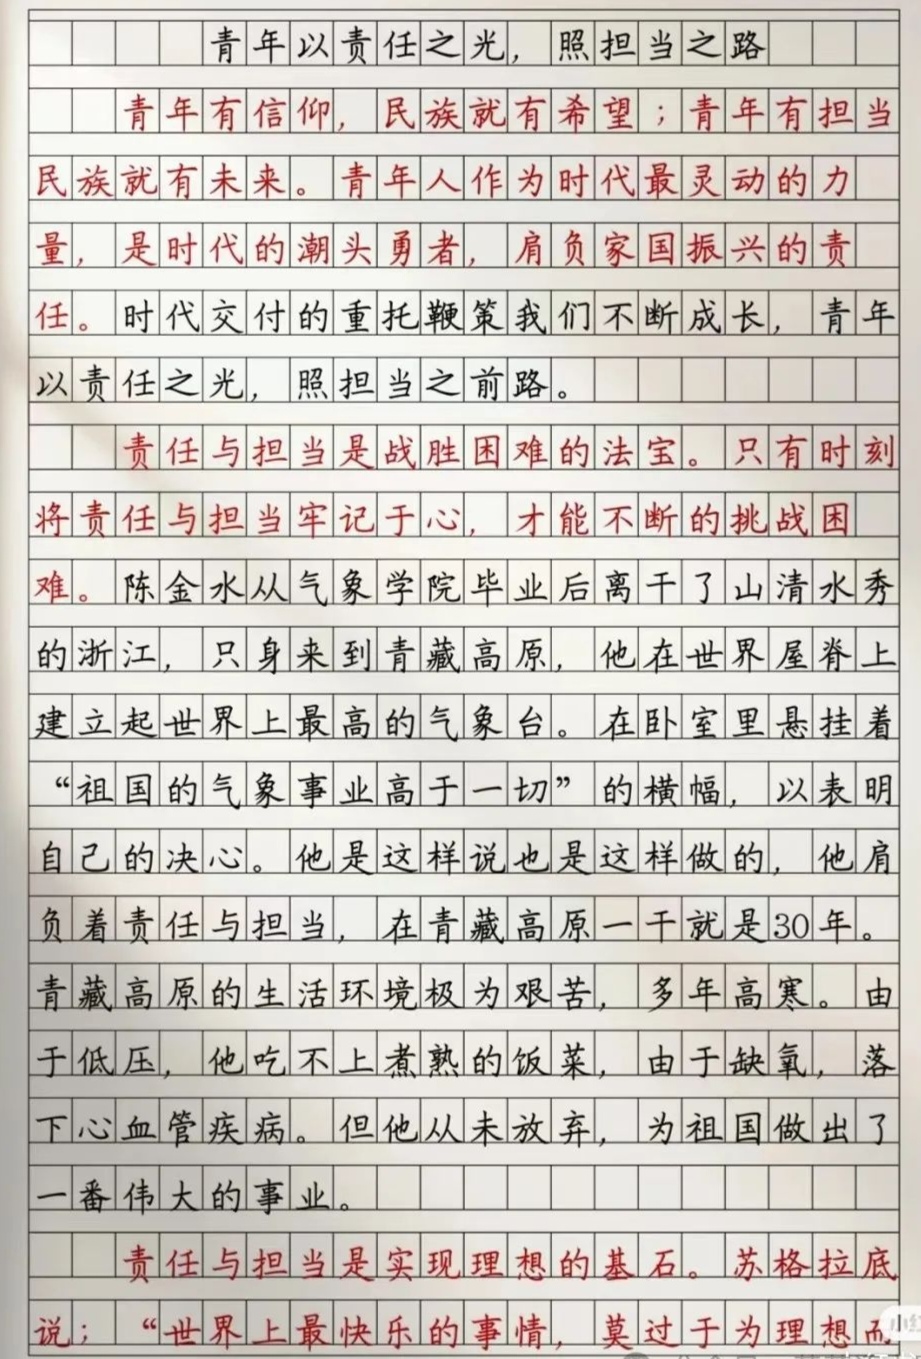 青年以责任之光，照担当之路
青年有信仰，民族就有希望；青年有担当
民族就有未来。青年人作为时代最灵动的力
量，是时代的潮头勇者，肩负家国振兴的责
任。时代交付的重托鞭策我们不断成长，青年
以责任之光，照担当之前路。
责任与担当是战胜困难的法宝。只有时刻
将责任与担当牢记于心，才能不断的挑战困
难。陈金水从气象学院毕业后离干了山清水秀
的浙江，只身来到青藏高原，他在世界屋脊上
建立起世界上最高的气象台。在卧室里悬挂着
“祖国的气象事业高于一切”的横幅，以表明
自己的决心。他是这样说也是这样做的，他肩
负着责任与担当，在青藏高原一干就是30年。
青藏高原的生活环境极为艰苦，多年高寒。由
于低压，他吃不上煮熟的饭菜，由于缺氧，落
下心血管疾病。但他从未放弃，为祖国做出了
一番伟大的事业。
责任与担当是实现理想的基石。苏格拉底
说；“世界上最快乐的事情，莫过于为理想而
小红